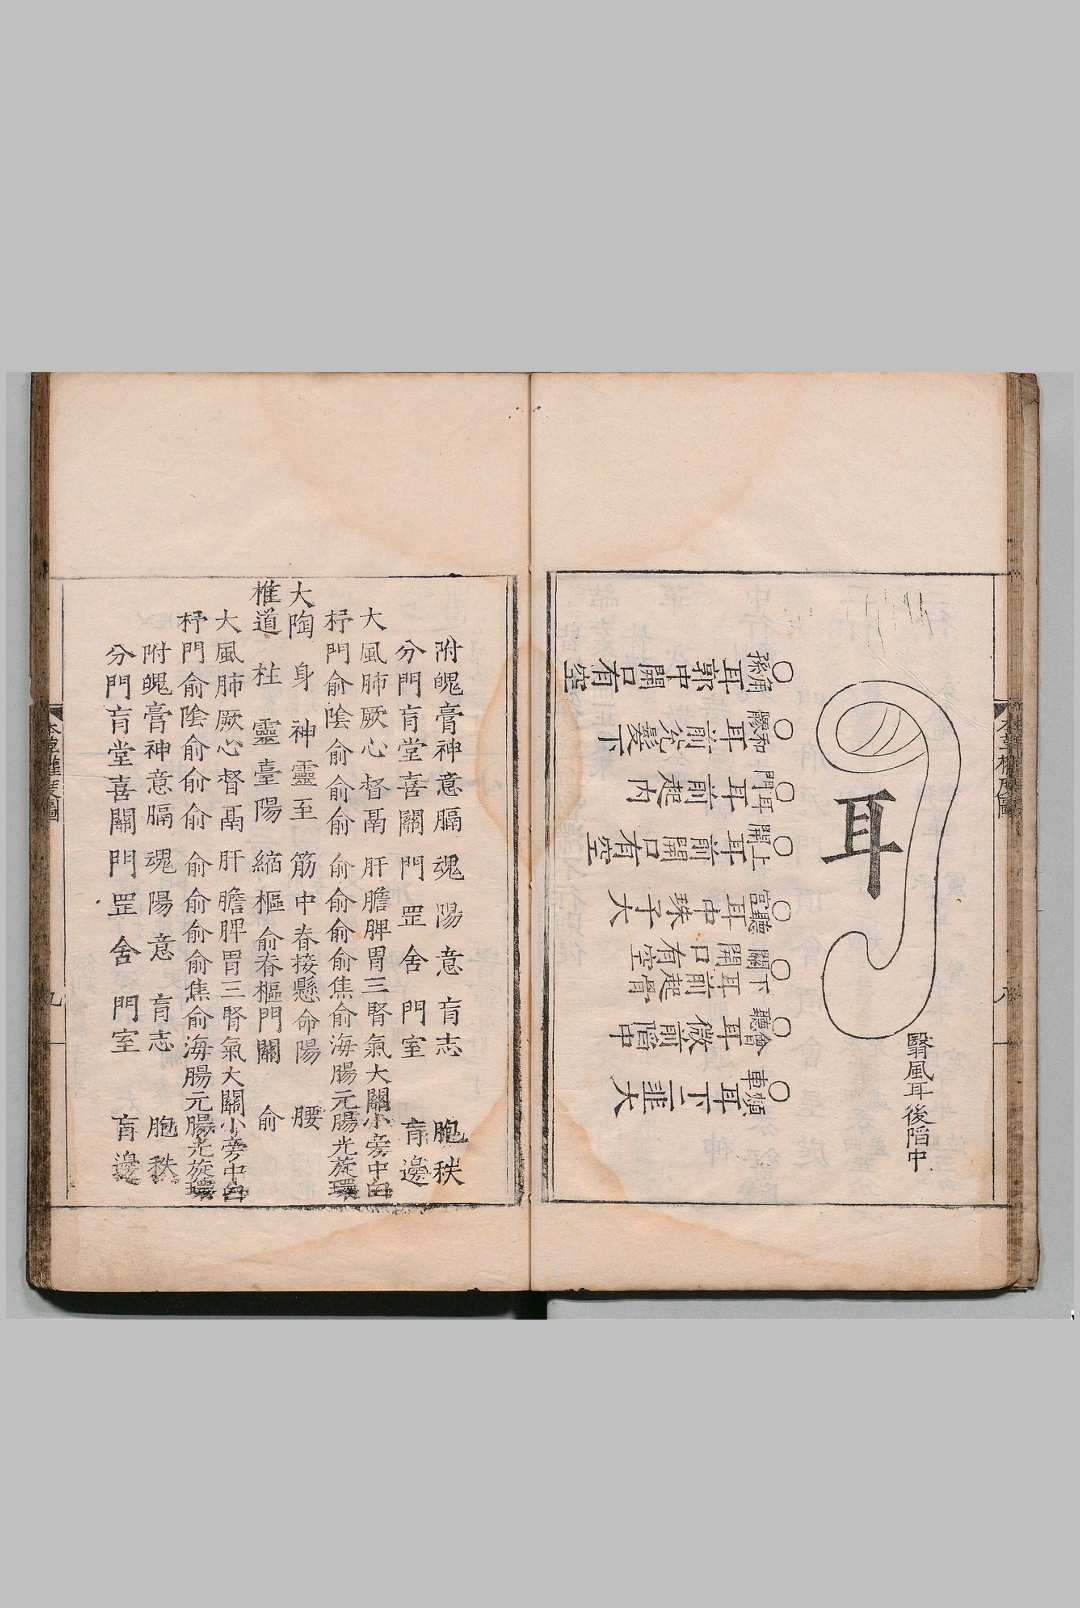 本草權度圖
八
翳風耳後陷中
耳
角孫
耳郭中開口有空
和髎
耳前兌髮下
耳門
耳前起肉
上關
耳前開口有空
聽宮
耳中珠子大
下關
耳前起骨
開口有空
聽會
耳微前陷中
頰車
耳下二韭大
附魄膏神意膈魂陽意肓志胞秩
分門肓堂喜關門罡舍門室肓邊
大風肺厥心督鬲肝膽脾胃三腎氣大關小旁中白
杼門俞陰俞俞俞俞俞俞俞焦俞海腸元腸光旋環
大陶身神靈至筋中脊接懸命陽腰
椎道柱靈臺陽縮樞俞脊樞門關俞
大風肺厥心督鬲肝膽脾胃三腎氣大關小旁中白
杼門俞陰俞俞俞俞俞俞俞焦俞海腸元腸光旋環
附魄膏神意膈魂陽意肓志胞秩
分門肓堂喜關門罡舍門室肓邊
本草權度圖
九